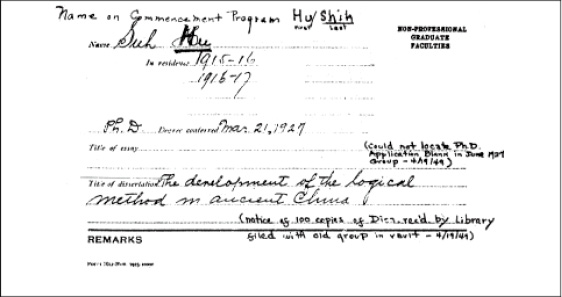 Name on Commencement Program Hu/Shih
First Last
NON-PROFESSIONAL
GRADUATE
FACULTIES
Name Suh Hu
In residence 1915-16
1916-17
Ph.D Degree conferred Mar. 21, 1927
Title of essay
(Could not locate Ph.D.
Application Blank in June 1927
group - 4/19/49)
Title of dissertation The development of the logical
method in ancient China
(notice of 100 copies of Diss. rec'd by Library
filed with old group in vault - 4/19/49)
REMARKS